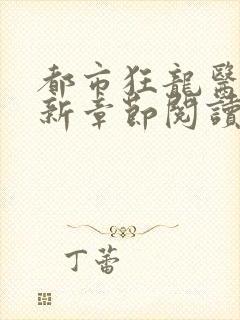 都市狂龍醫
新章節閱讀
丁蕾